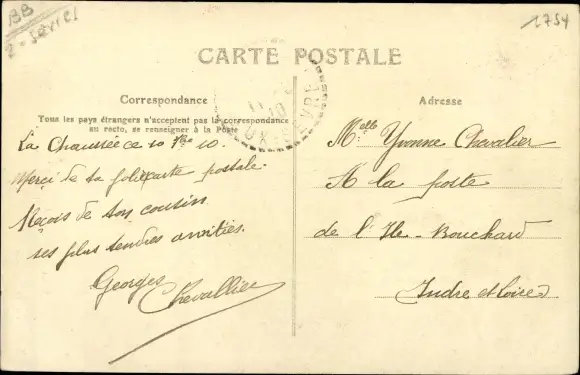 BB
2-sevres
1754
CARTE POSTALE
Correspondance
Tous les pays étrangers n'acceptent pas la correspondance
au recto, se renseigner à la Poste
La Chaussée ce 10 7bre 10.
Merci de ta jolie carte postale.
Reçois de ton cousin
ses plus tendres amitiés.
Georges
Chevallier
Adresse
Melle Yvonne Chevalier
A la poste
de l'Ile-Bouchard
Indre et Loire